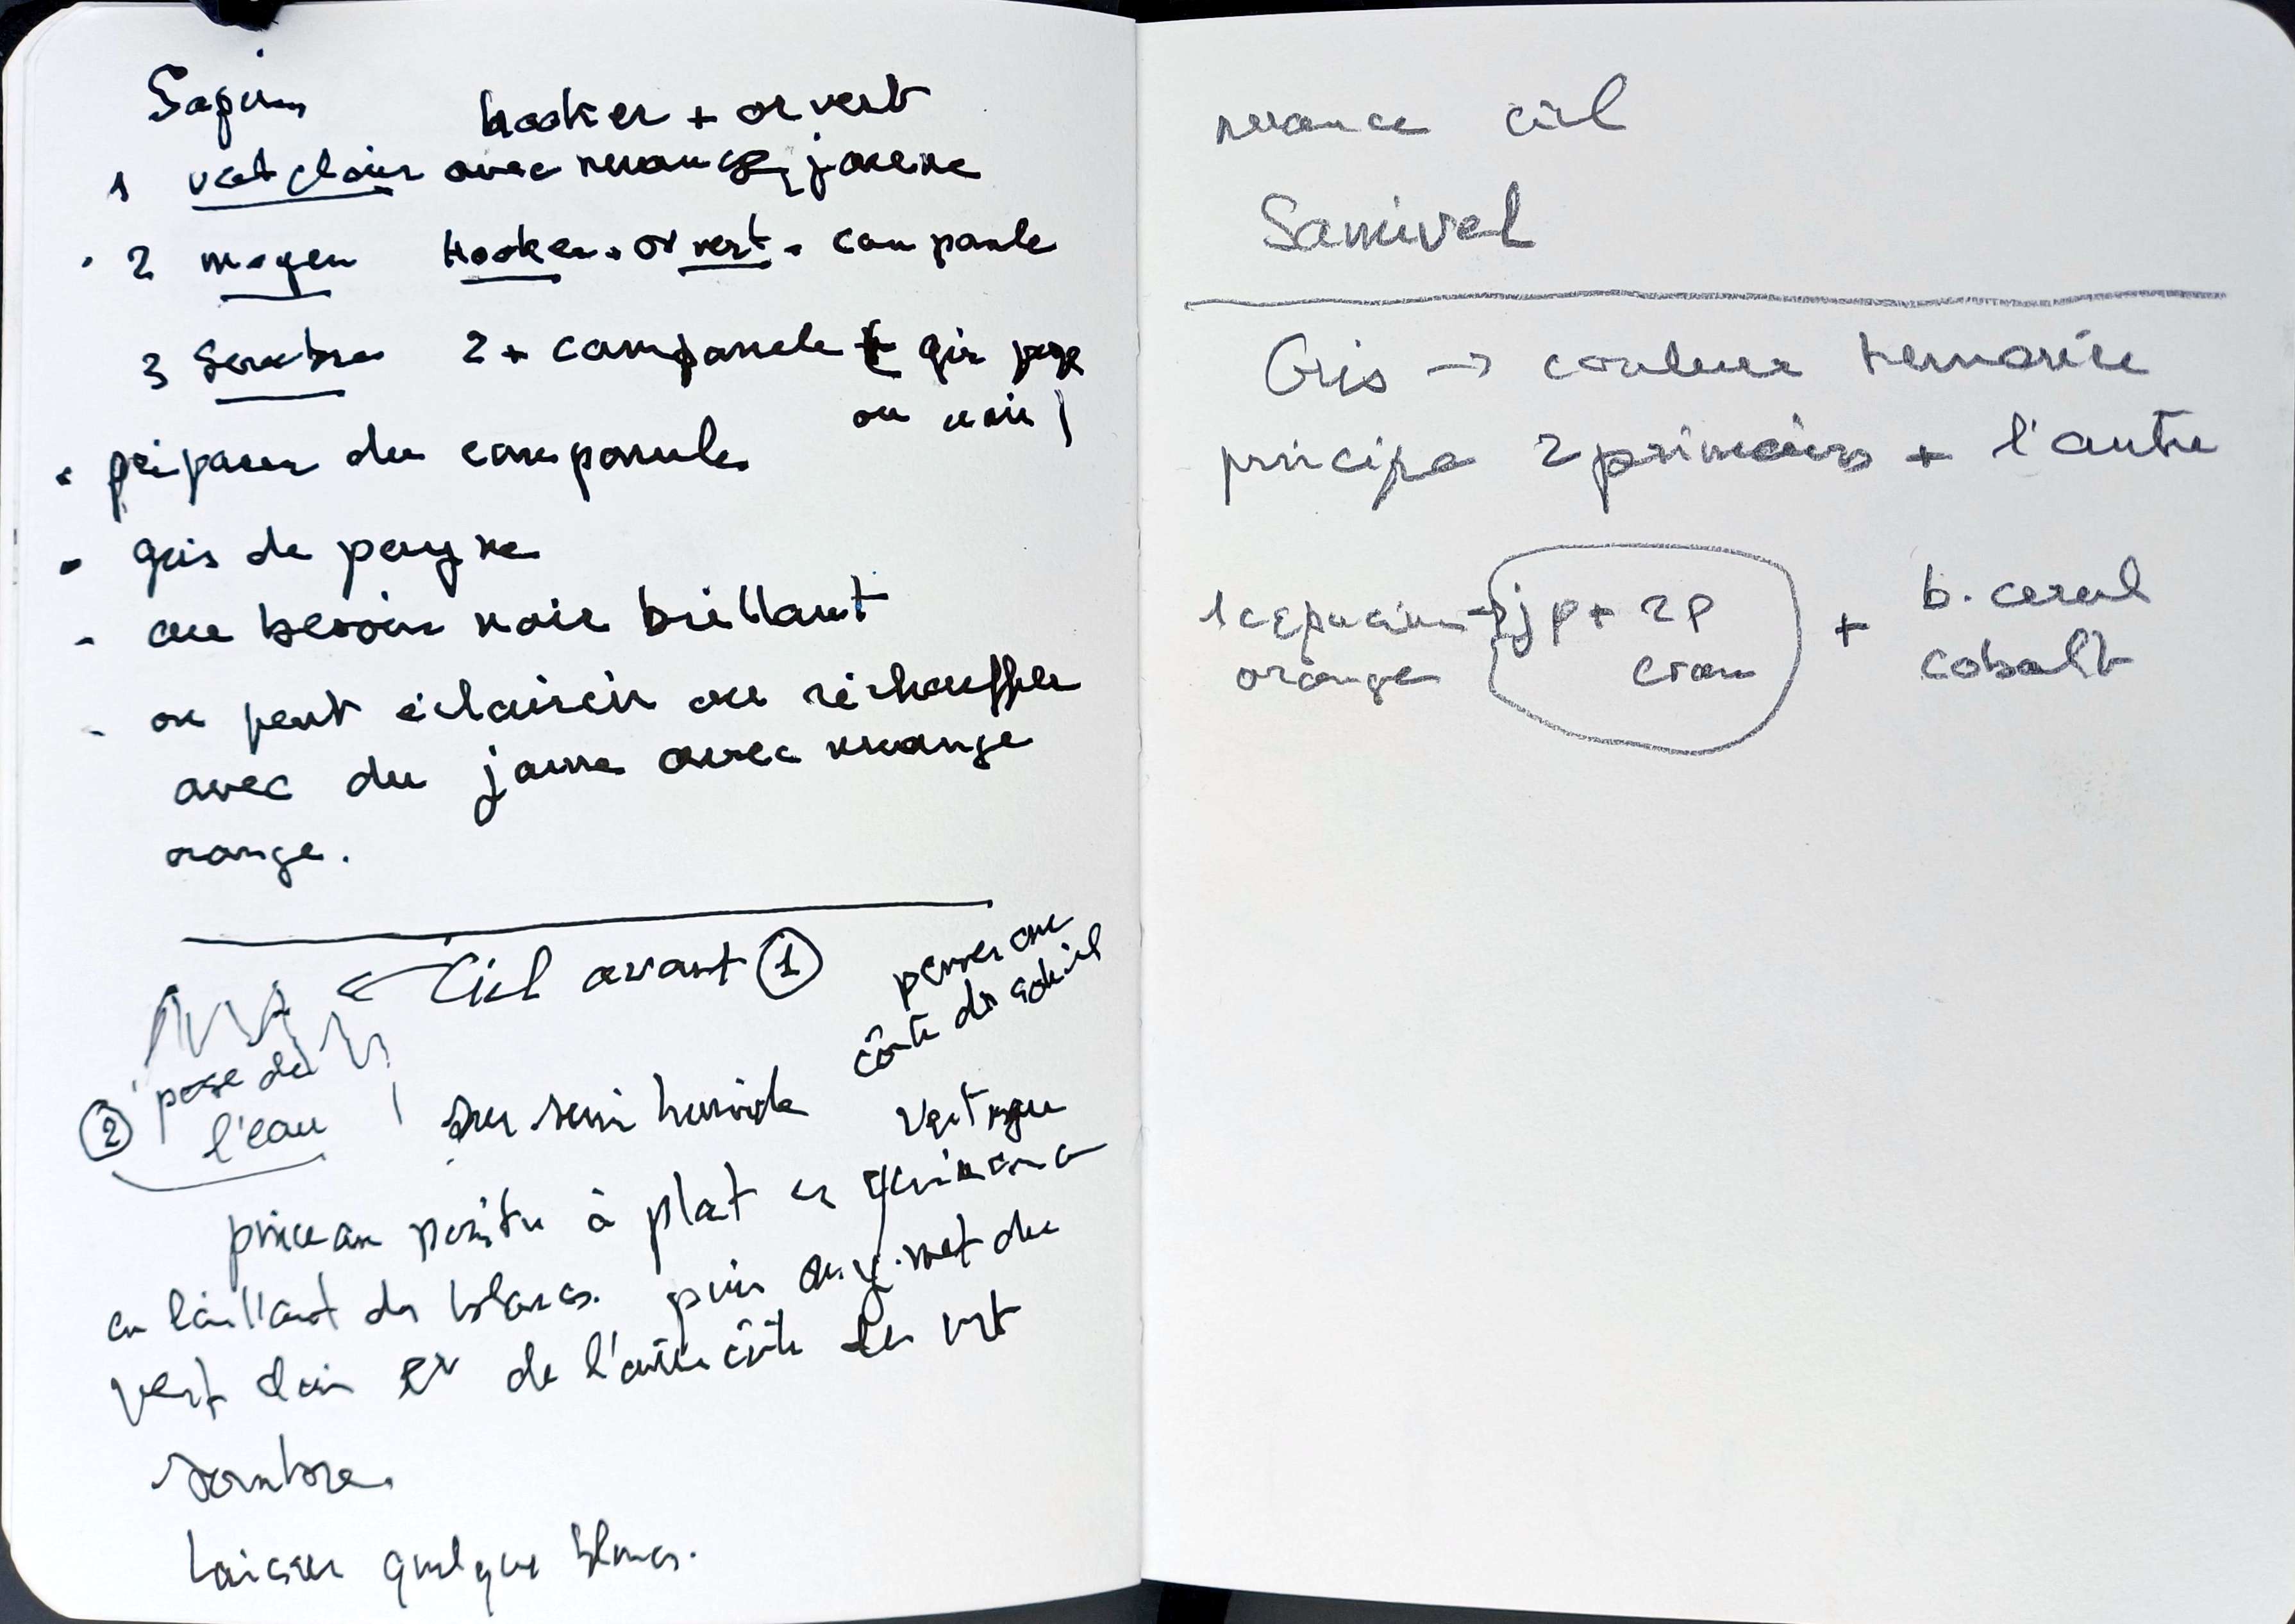 Sapins
hooker + or vert
1 vert clair avec nuance jaune
2 moyen Hooker + or vert + campanule
3 Sombre 2 + campanule ( gris payne
ou noir )
préparer du campanule
gris de payne
au besoin noir brillant
on peut éclaircir ou réchauffer
avec du jaune avec nuange
orange.
Ciel avant 1
penser au
côté du soleil
2 pose de
l'eau
sur semi humide
vert moyen
pinceau pointu à plat
en laissant des blancs. puis on y met du
vert clair et de l'autre côté le vert
sombre.
Laisser quelque blancs.
nuance ciel
Samivel
Gris → couleur ternaire
principe 2 primaires + l'autre
1 capucine → jp + 2p + b. cerul
orange cobalt